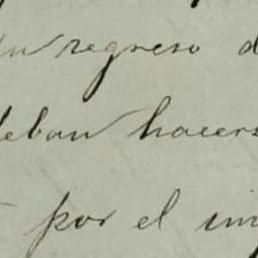 su regreso d
deban hacers
por el im